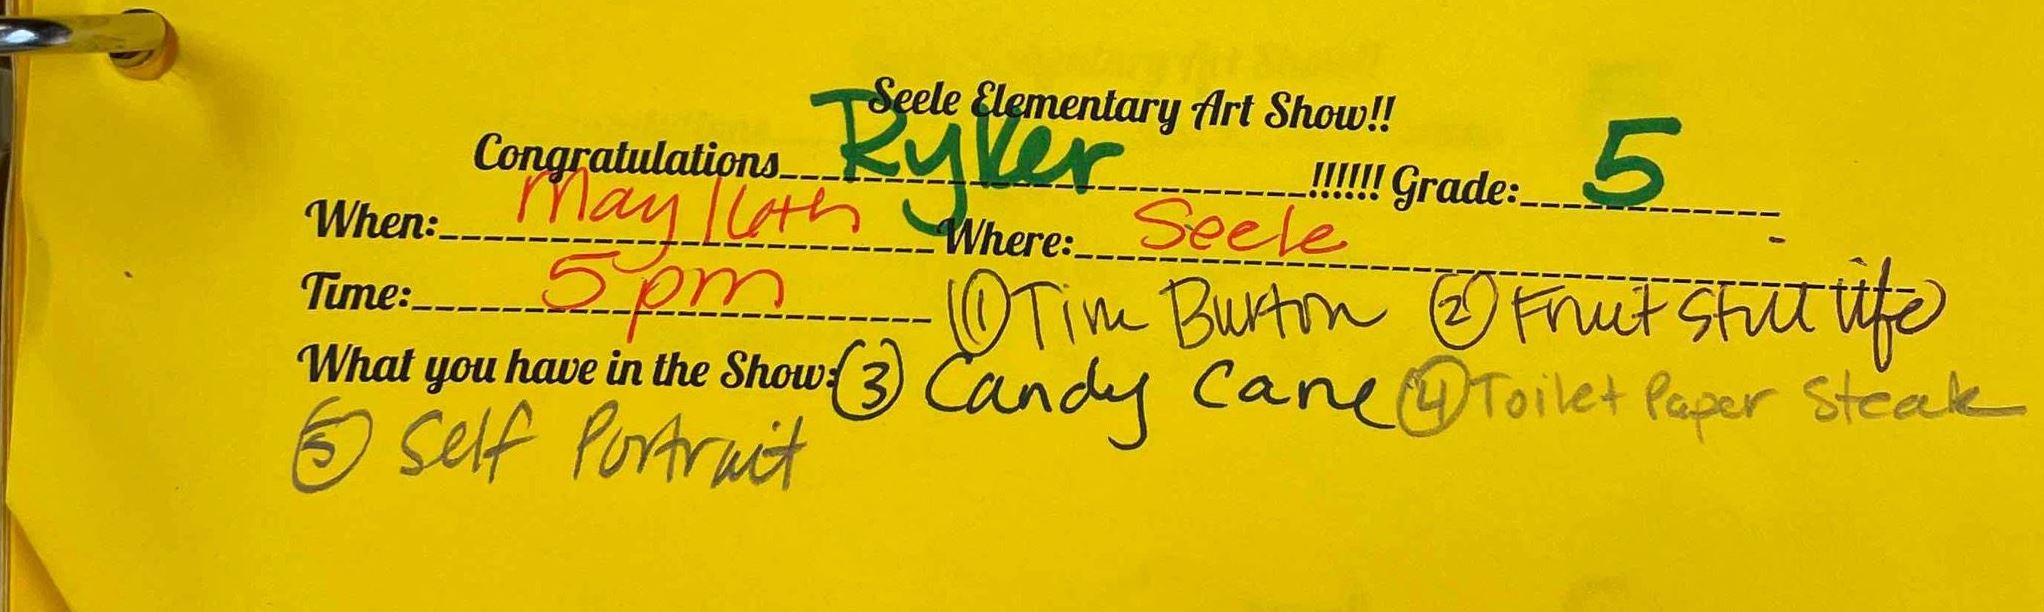 Seele Elementary Art Show!!
Congratulations Ryker !!!!!! Grade: 5
When: May 16th Where: Seele
Time: 5pm ① Tim Burton ② Fruit Still life
What you have in the Show: ③ Candy Cane ④ Toilet Paper Steak
⑤ Self Portrait